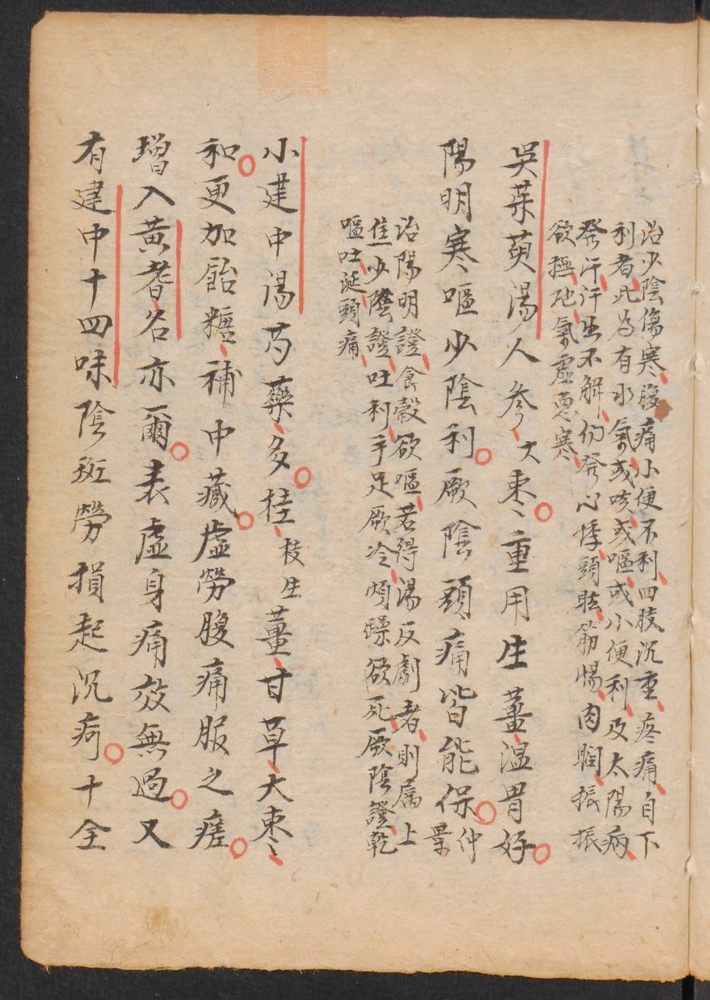 治少陰傷寒腹痛小便不利四肢沉重疼痛自下
利者此為有水氣或咳或嘔或小便利及太陽病
發汗汗出不解仍發心悸頭眩筋惕肉瞤振振
欲擗地氣虛惡寒
吳茱萸湯人參大棗重用生薑溫胃好
陽明寒嘔少陰利厥陰頭痛皆能保仲景
治陽明證食穀欲嘔若得湯反劇者則屬上
焦少陰證吐利手足厥冷煩躁欲死厥陰證乾
嘔吐涎頭痛
小建中湯芍藥多桂枝生薑甘草大棗
和更加飴糖補中藏虛勞腹痛服之瘥
增入黃耆名亦爾表虛身痛效無過又
有建中十四味陰斑勞損起沉疴十全